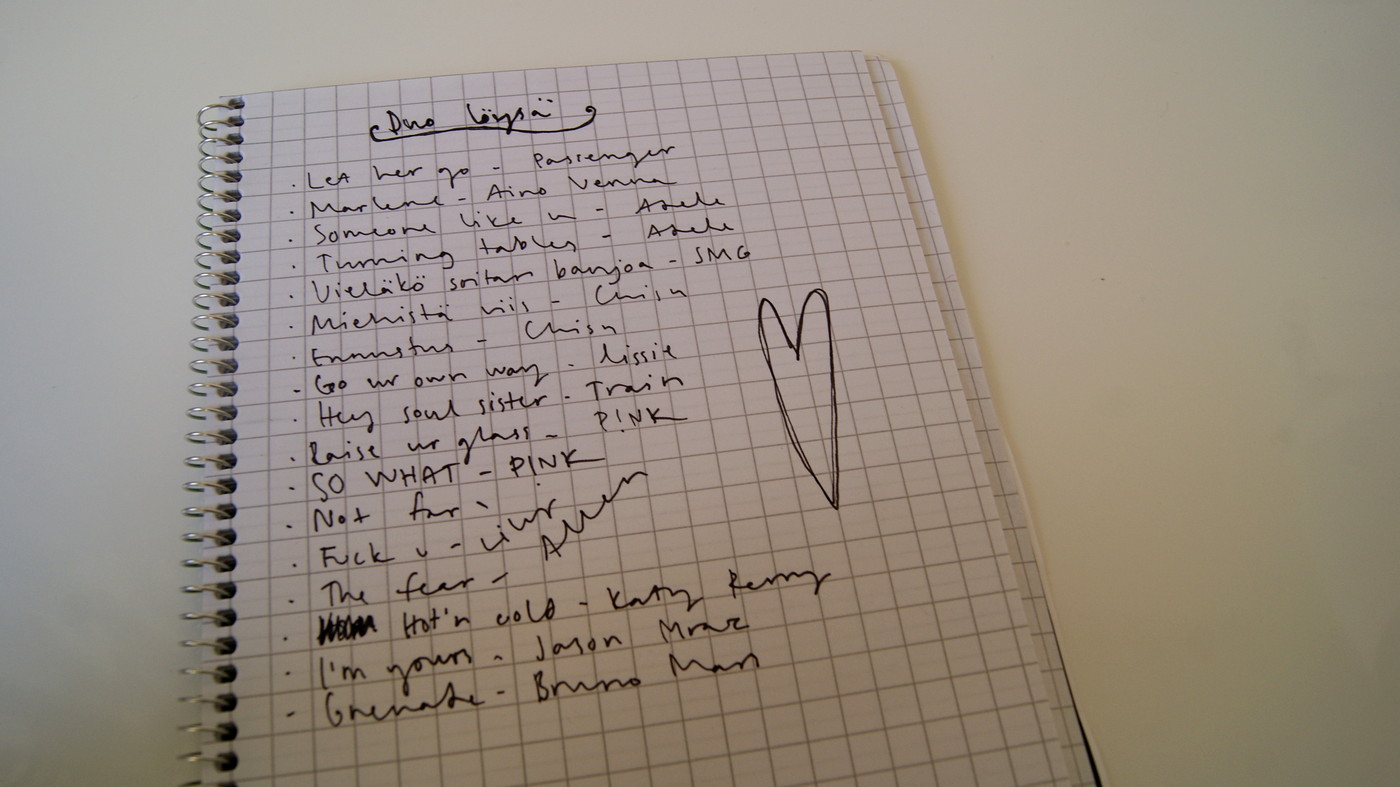 Duo löysä
. Let her go - Passenger
. Marlene - Aino Venna
. Someone like u - Adele
. Turning tables - Adele
. Vieläkö soitan banjoa - SMG
. Miehistä viis - Chisu
. Ennustus - Chisu
- Go ur own way - Lissie
. Hey soul sister - Train
. Raise ur glass - P!NK
. SO WHAT - P!NK
. Not fair -
. Fuck u - Lily Allen
. The fear -
. Hot'n cold - Katy Perry
. I'm yours - Jason Mraz
- Grenade - Bruno Mars